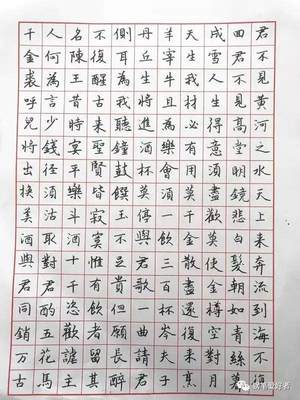 君不見黃河之水天上來奔流到海不復
回君不見高堂明鏡悲白髮朝如青絲暮
成雪人生得意須盡歡莫使金樽空對月
天生我材必有用莫千金散盡還復來烹
羊宰牛且為樂會須一飲三百杯岑夫子
丹丘生將進酒杯莫停與君歌一曲請君
側耳為我聽鐘鼓饌玉不足貴但願長醉
不復醒古來聖賢皆寂寞惟有飲者留其
名陳王昔時宴平樂斗酒十千恣歡謔主
人何為言少錢徑須沽取對君酌五花馬
千金裘呼兒將出換美酒與君同銷萬古